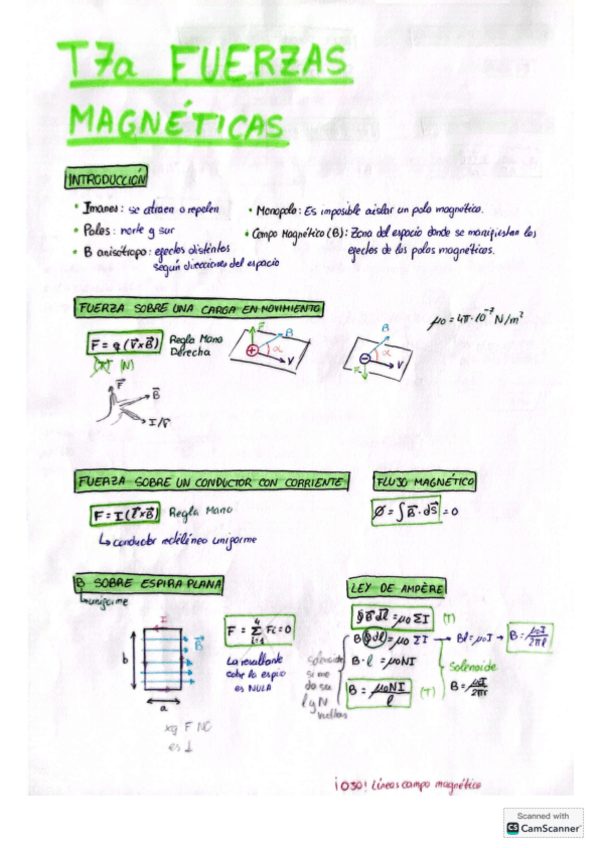 T7a FUERZAS
MAGNÉTICAS
INTRODUCCIÓN
• Imanes: se atraen o repelen
• Polos: norte y sur
• B anisótropo: efectos distintos
según direcciones del espacio
• Monopolo: Es imposible aislar un polo magnético.
• Campo Magnético (B): Zona del espacio donde se manifiestan los
efectos de los polos magnéticos.
FUERZA SOBRE UNA CARGA EN MOVIMIENTO
μ0 = 4π·10⁻⁷ N/m²
F = q (v⃗ x B⃗)
Regla Mano
Derecha
(N)
F B α V
B α V F
F⃗
B⃗
I/v⃗
FUERZA SOBRE UN CONDUCTOR CON CORRIENTE
F = I (l⃗ x B⃗) Regla Mano
↳ conductor rectilíneo uniforme
FLUJO MAGNÉTICO
Ø = ∫ B⃗ · dS⃗ = 0
B SOBRE ESPIRA PLANA
↳ uniforme
b
a
B⃗
F = Σ Fi = 0
4
i=1
La resultante
sobre la espira
es NULA
xq F NO
es ⊥
LEY DE AMPÈRE
∮ B⃗ dl⃗ = μ0 ΣI (T)
B ∮ dl = μ0 ΣI → Bl = μ0 I → B = μ0 I / 2πl
B · l = μ0 NI
B = μ0 NI / l (T)
Solenoide
si me
da su
l y N
vueltas
Solenoide
B = μ0 I / 2πr
¡OJO! Líneas campo magnético
Scanned with
CS CamScanner